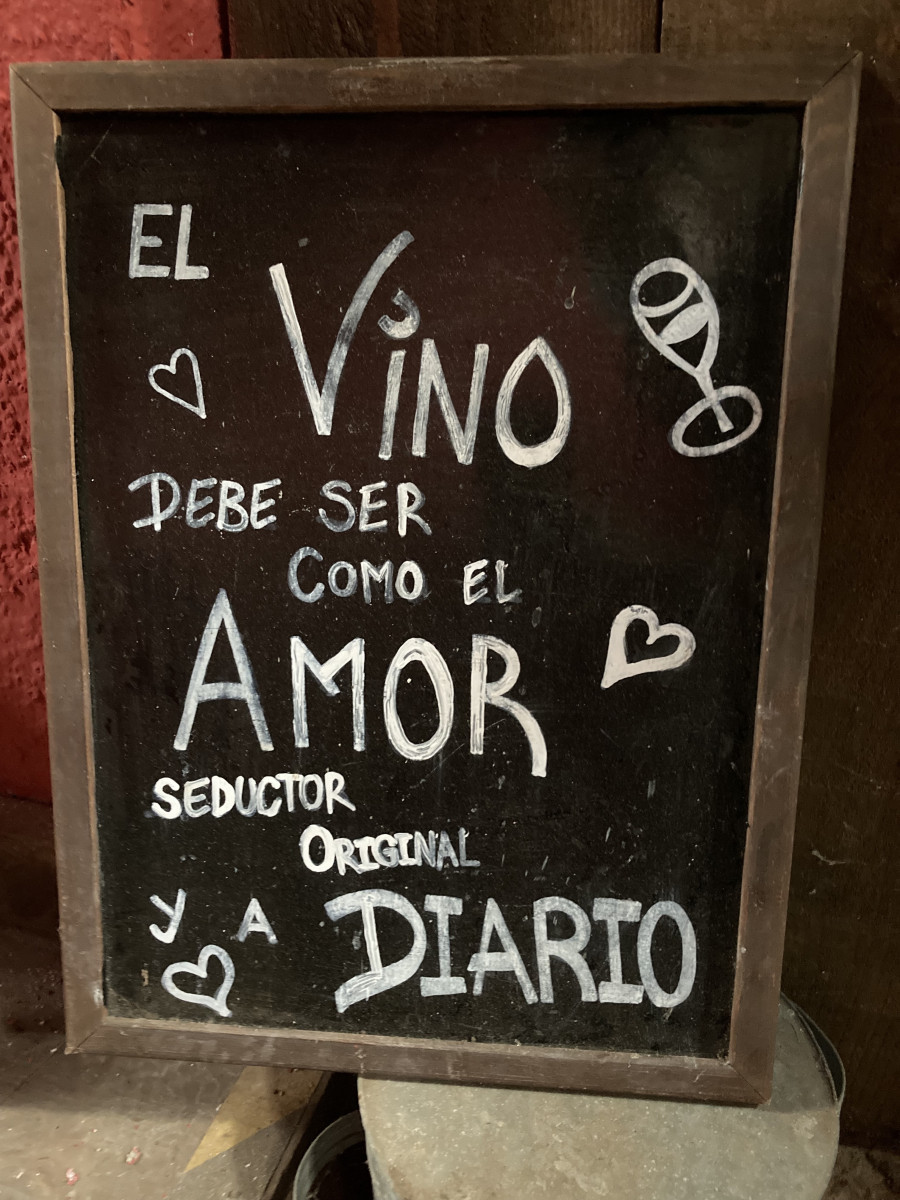 EL
ViNO
DEBE SER
COMO EL
AMOR
SEDUCTOR
ORIGINAL
Y A DIARIO